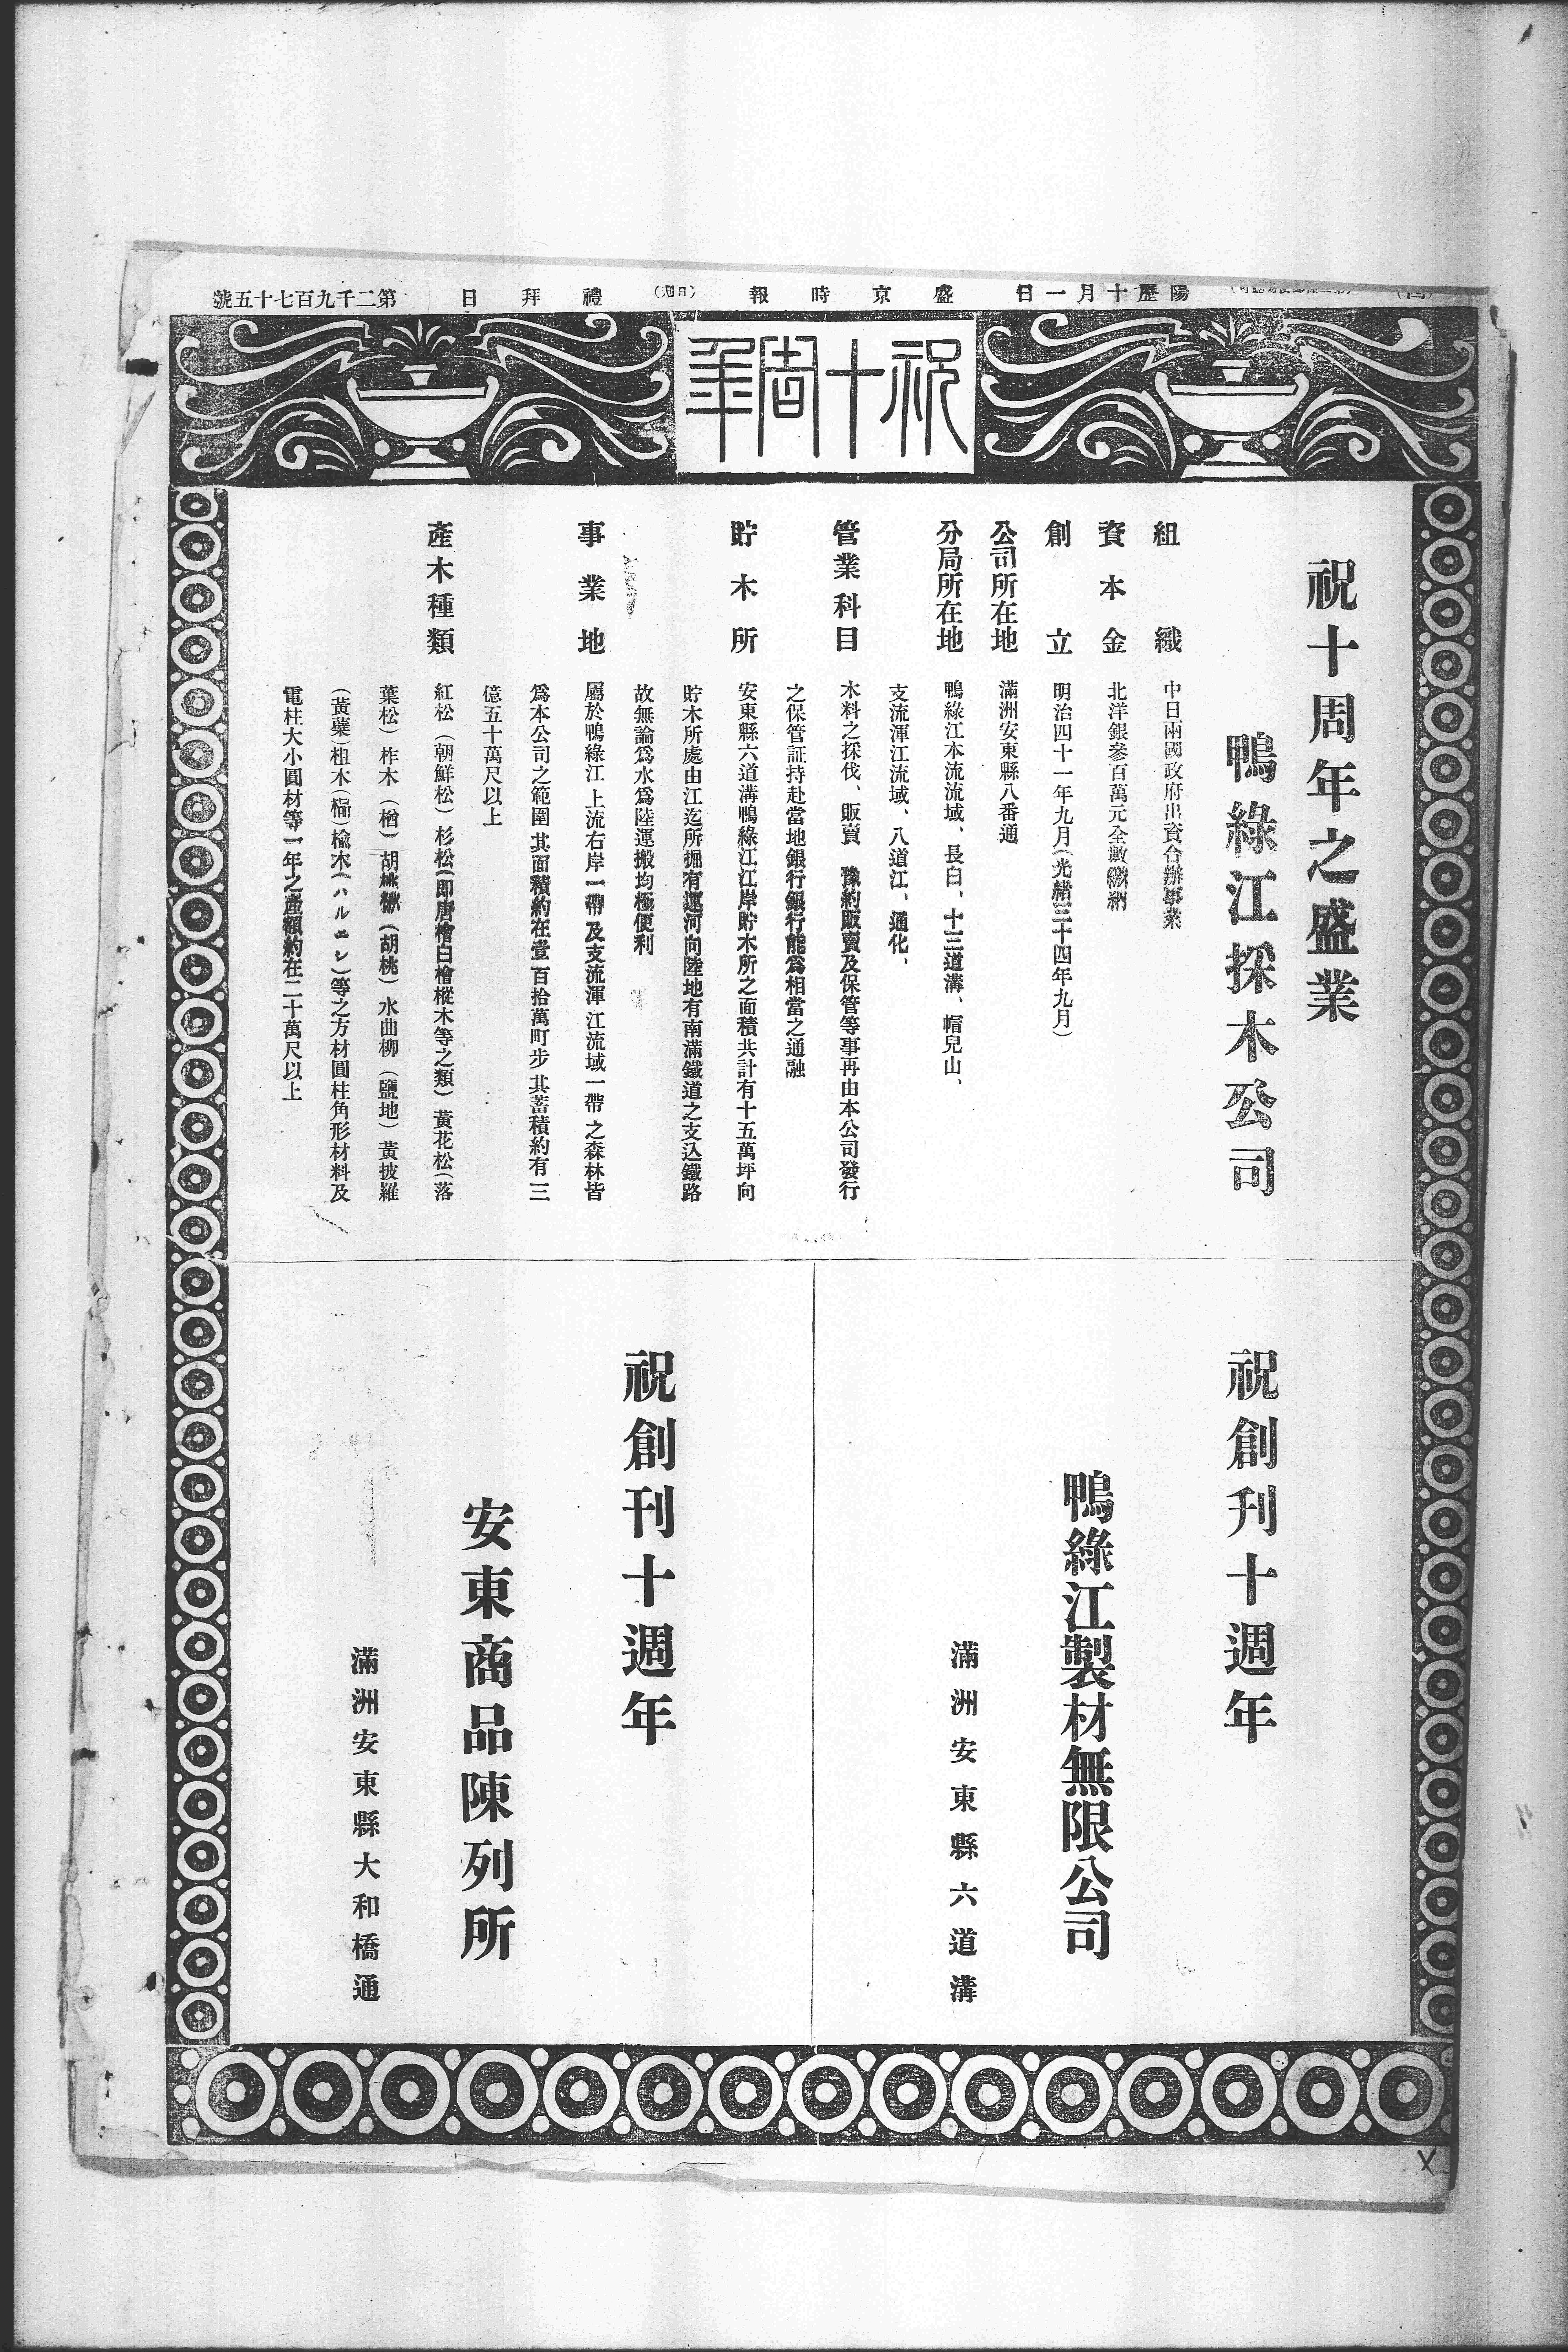 陽歷十月一日
盛京時報
禮拜日
第二千九百七十五號
祝十周年
祝十周年之盛業
鴨綠江採木公司
組織 中日兩國政府出資合辦事業
資本金 北洋銀參百萬元全數繳納
創立 明治四十一年九月(光緒三十四年九月)
公司所在地 滿洲安東縣八番通
分局所在地 鴨綠江本流流域、長白、十三道溝、帽兒山、
支流渾江流域、八道江、通化、
管業科目 木料之採伐、販賣 豫約販賣及保管等事再由本公司發行
之保管証持赴當地銀行銀行能爲相當之通融
貯木所 安東縣六道溝鴨綠江江岸貯木所之面積共計有十五萬坪向
貯木所處由江迄所掘有運河向陸地有南滿鐵道之支込鐵路
故無論爲水爲陸運搬均極便利
事業地 屬於鴨綠江上流右岸一帶及支流渾江流域一帶之森林皆
爲本公司之範圍其面積約在壹百拾萬町步其蓄積約有三
億五十萬尺以上
產木種類 紅松(朝鮮松)杉松(即唐檜白檜樅木等之類)黃花松(落
葉松)柞木(楢)胡桃楸(胡桃)水曲柳(鹽地)黃披羅
(黃蘗)椴木( )楡木(ハルニレ)等之方材圓柱角形材料及
電柱大小圓材等一年之產額約在二十萬尺以上
祝創刊十週年
鴨綠江製材無限公司
滿洲安東縣六道溝
祝創刊十週年
安東商品陳列所
滿洲安東縣大和橋通